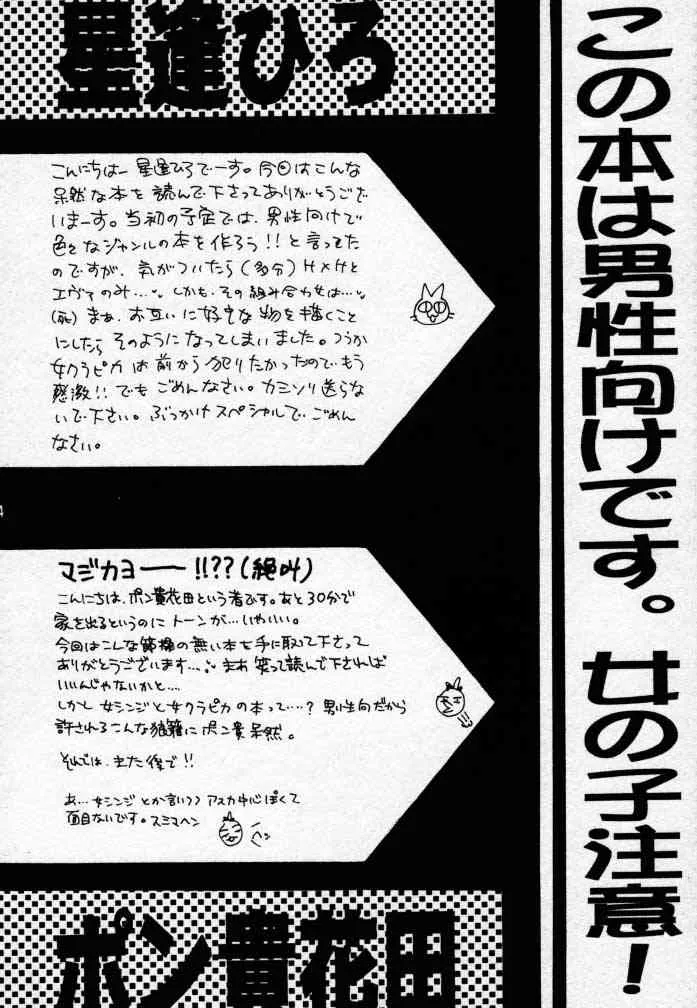 この本は男性向けです。女の子注意！
星逢ひろ
こんにちはー 星逢ひろでーす。今回はこんな
呆然な本を読んで下さってありがとうござ
いまーす。当初の予定では、男性向けで
色々なジャンルの本を作ろう!!と言ってた
のですが、気がついたら(多分)H×Hと
エヴァのみ…。しかも、その組み合わせは…。
(死) まぁ、お互いに好きな物を描くこと
にしたら そのようになってしまいました。つうか
女クラピカは前から犯りたかったので、もう
感激!! でも ごめんなさい。カミソリ送らな
いで下さい。ぶっかけスペシャルで ごめん
なさい。
4
マジカヨーー!!??(絶叫)
こんにちは、ポン貴花田という者です。あと30分で
家を出るというのに トーンが…。いやいい。
今回はこんな節操の無い本を手に取って下さって
ありがとうございます…。まあ 笑って読んで下されば
いいんじゃないかと…。
しかし 女シンジと女クラピカの本って…? 男性向だから
許されるこんな狼籍にポン貴呆然。
それでは、また後で!!
あ…女シンジとか言いつつ アスカ中心ぽくて
面目ないです。スミマヘン
ヘン
ポン貴花田